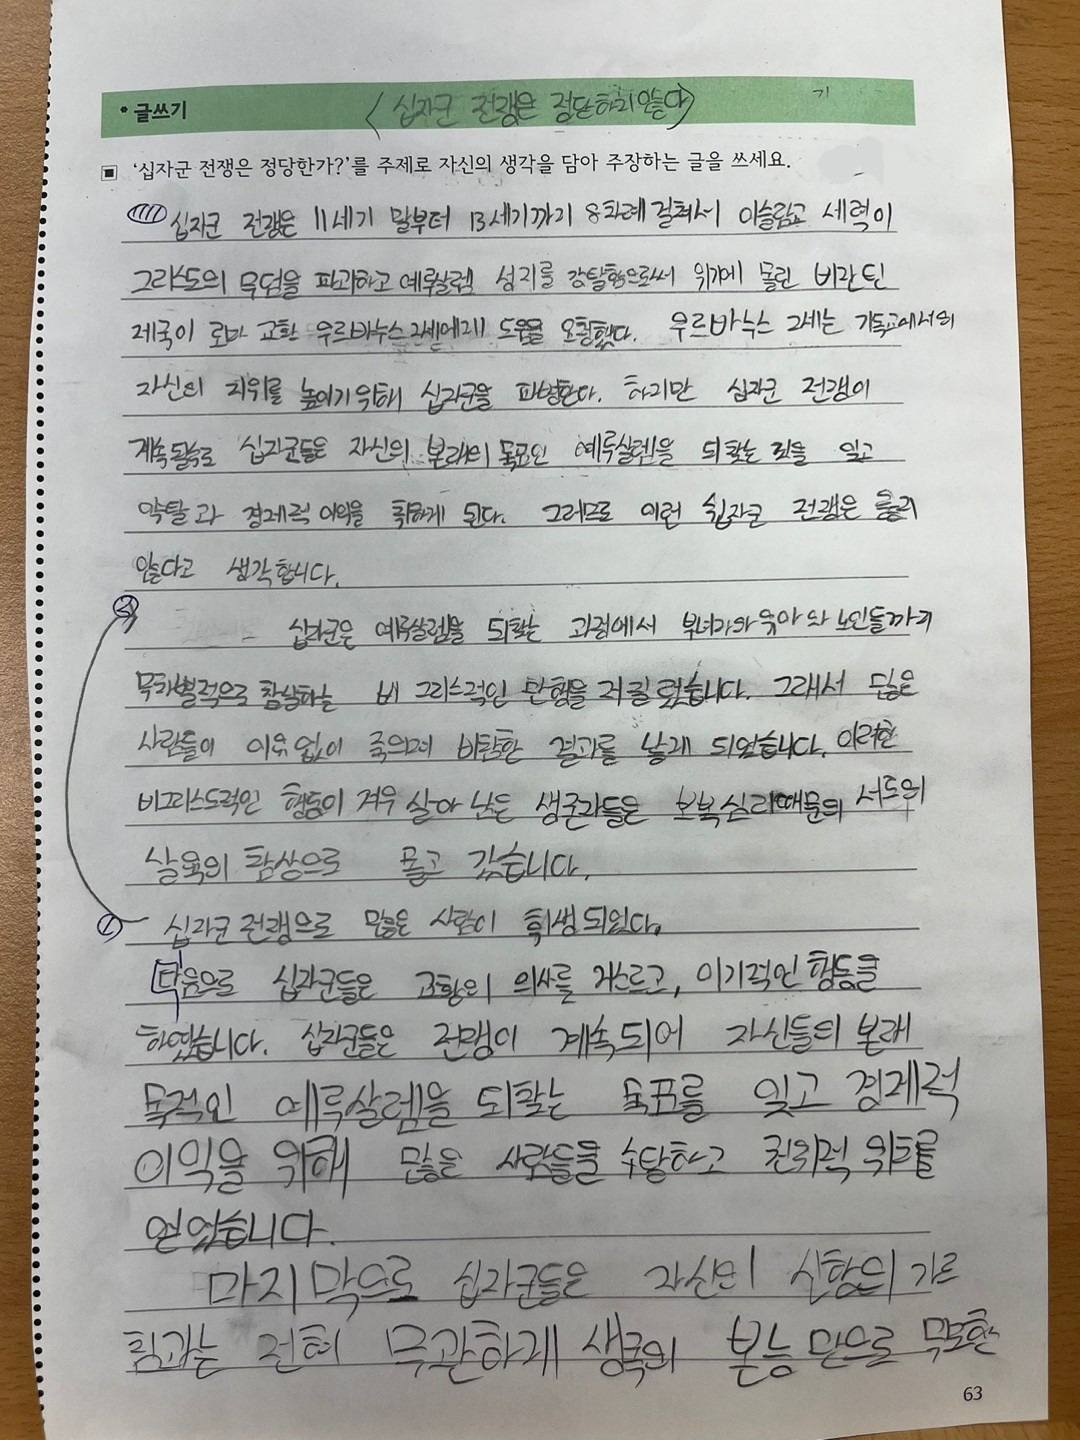 • 글쓰기 <십자군 전쟁은 정당하지 않다> 기
▣ '십자군 전쟁은 정당한가?'를 주제로 자신의 생각을 담아 주장하는 글을 쓰세요.
십자군 전쟁은 11세기 말부터 13세기까지 8차례 걸쳐서 이슬람교 세력이
그리스도의 무덤을 파괴하고 예루살렘 성지를 강탈함으로써 위기에 몰린 비잔틴
제국이 로마 교황 우르바누스 2세에게 도움을 요청했다. 우르바누스 2세는 기독교에서의
자신의 지위를 높이기 위해 십자군을 파병한다. 하지만 십자군 전쟁이
계속될수록 십자군들은 자신의 본래의 목표인 예루살렘을 되찾는 것을 잊고
약탈과 경제적 이익을 취하게 된다. 그러므로 이런 십자군 전쟁은 옳지
않다고 생각합니다.
② 십자군은 예루살렘을 되찾는 과정에서 부녀자와 유아와 노인들까지
무차별적으로 참살하는 비 그리스적인 만행을 저질렀습니다. 그래서 많은
사람들이 이유없이 죽의며 비참한 결과를 낳게 되었습니다. 이러한
비그리스도적인 행동이 겨우 살아 남은 생존자들은 보복심리때문의 서도의
살육의 참상으로 몰고 갔습니다.
① 십자군 전쟁으로 많은 사람이 희생되었다.
다음으로 십자군들은 교황의 의사를 거스르고, 이기적인 행동을
하였습니다. 십자군들은 전쟁이 계속되어 자신들의 본래
목적인 예루살렘을 되찾는 목표를 잊고 경제적
이익을 위해 많은 사람들을 수탈하고 권위적 위치를
얻었습니다.
마지막으로 십자군들은 자신의 신앙의 가르
침과는 전혀 무관하게 생국의 본능 만으로 무모한
63